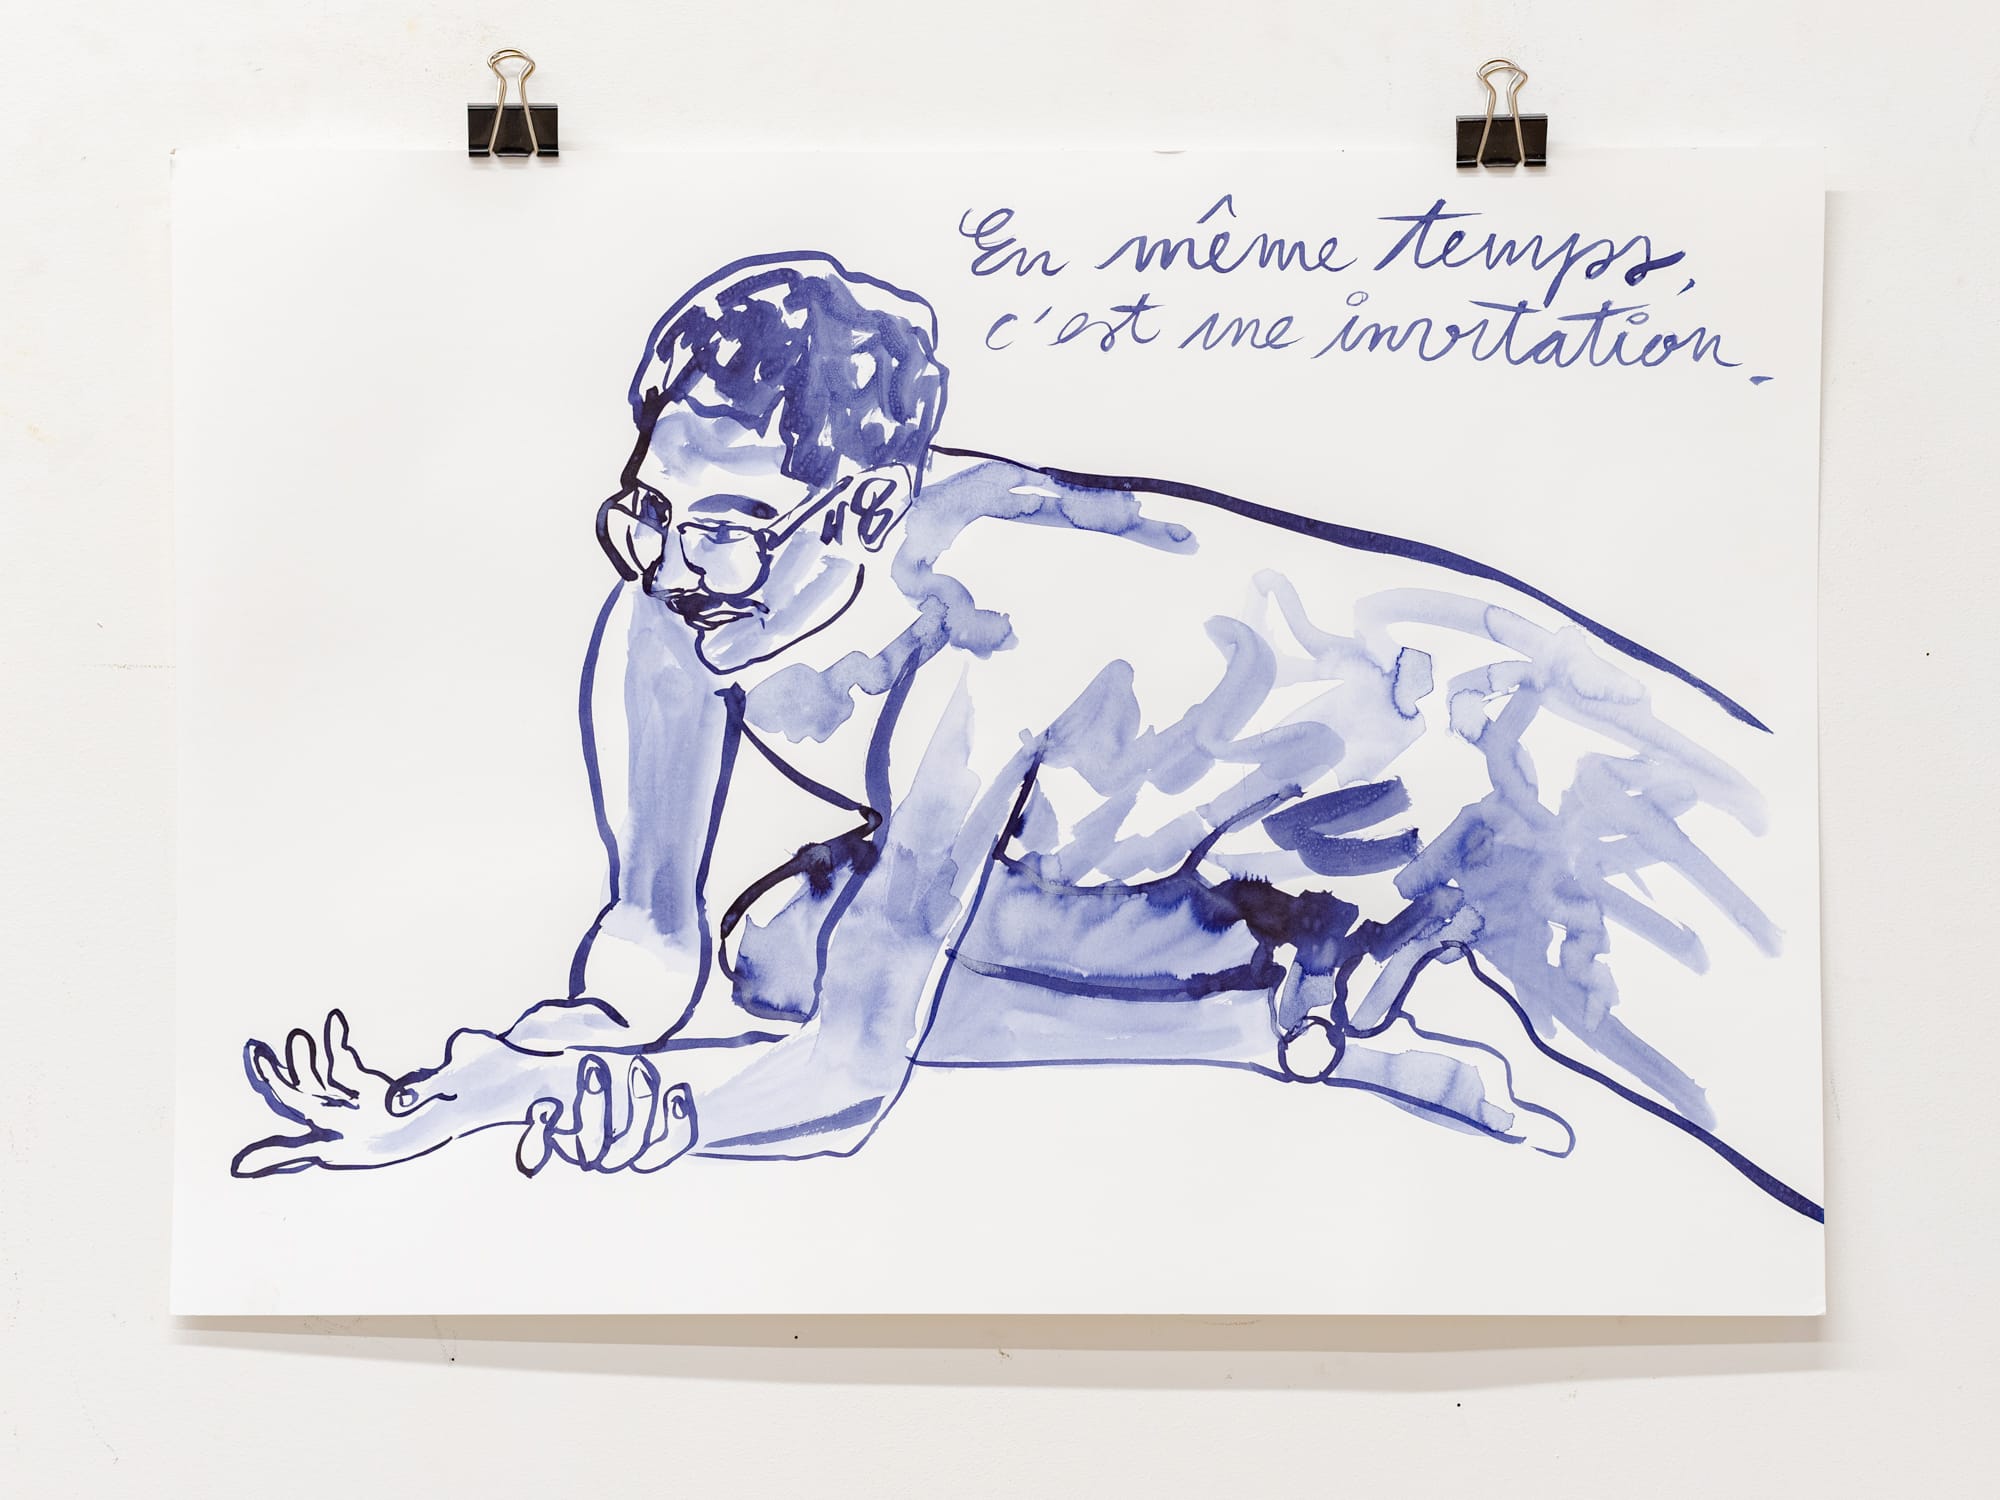 En même temps,
c'est une invitation.